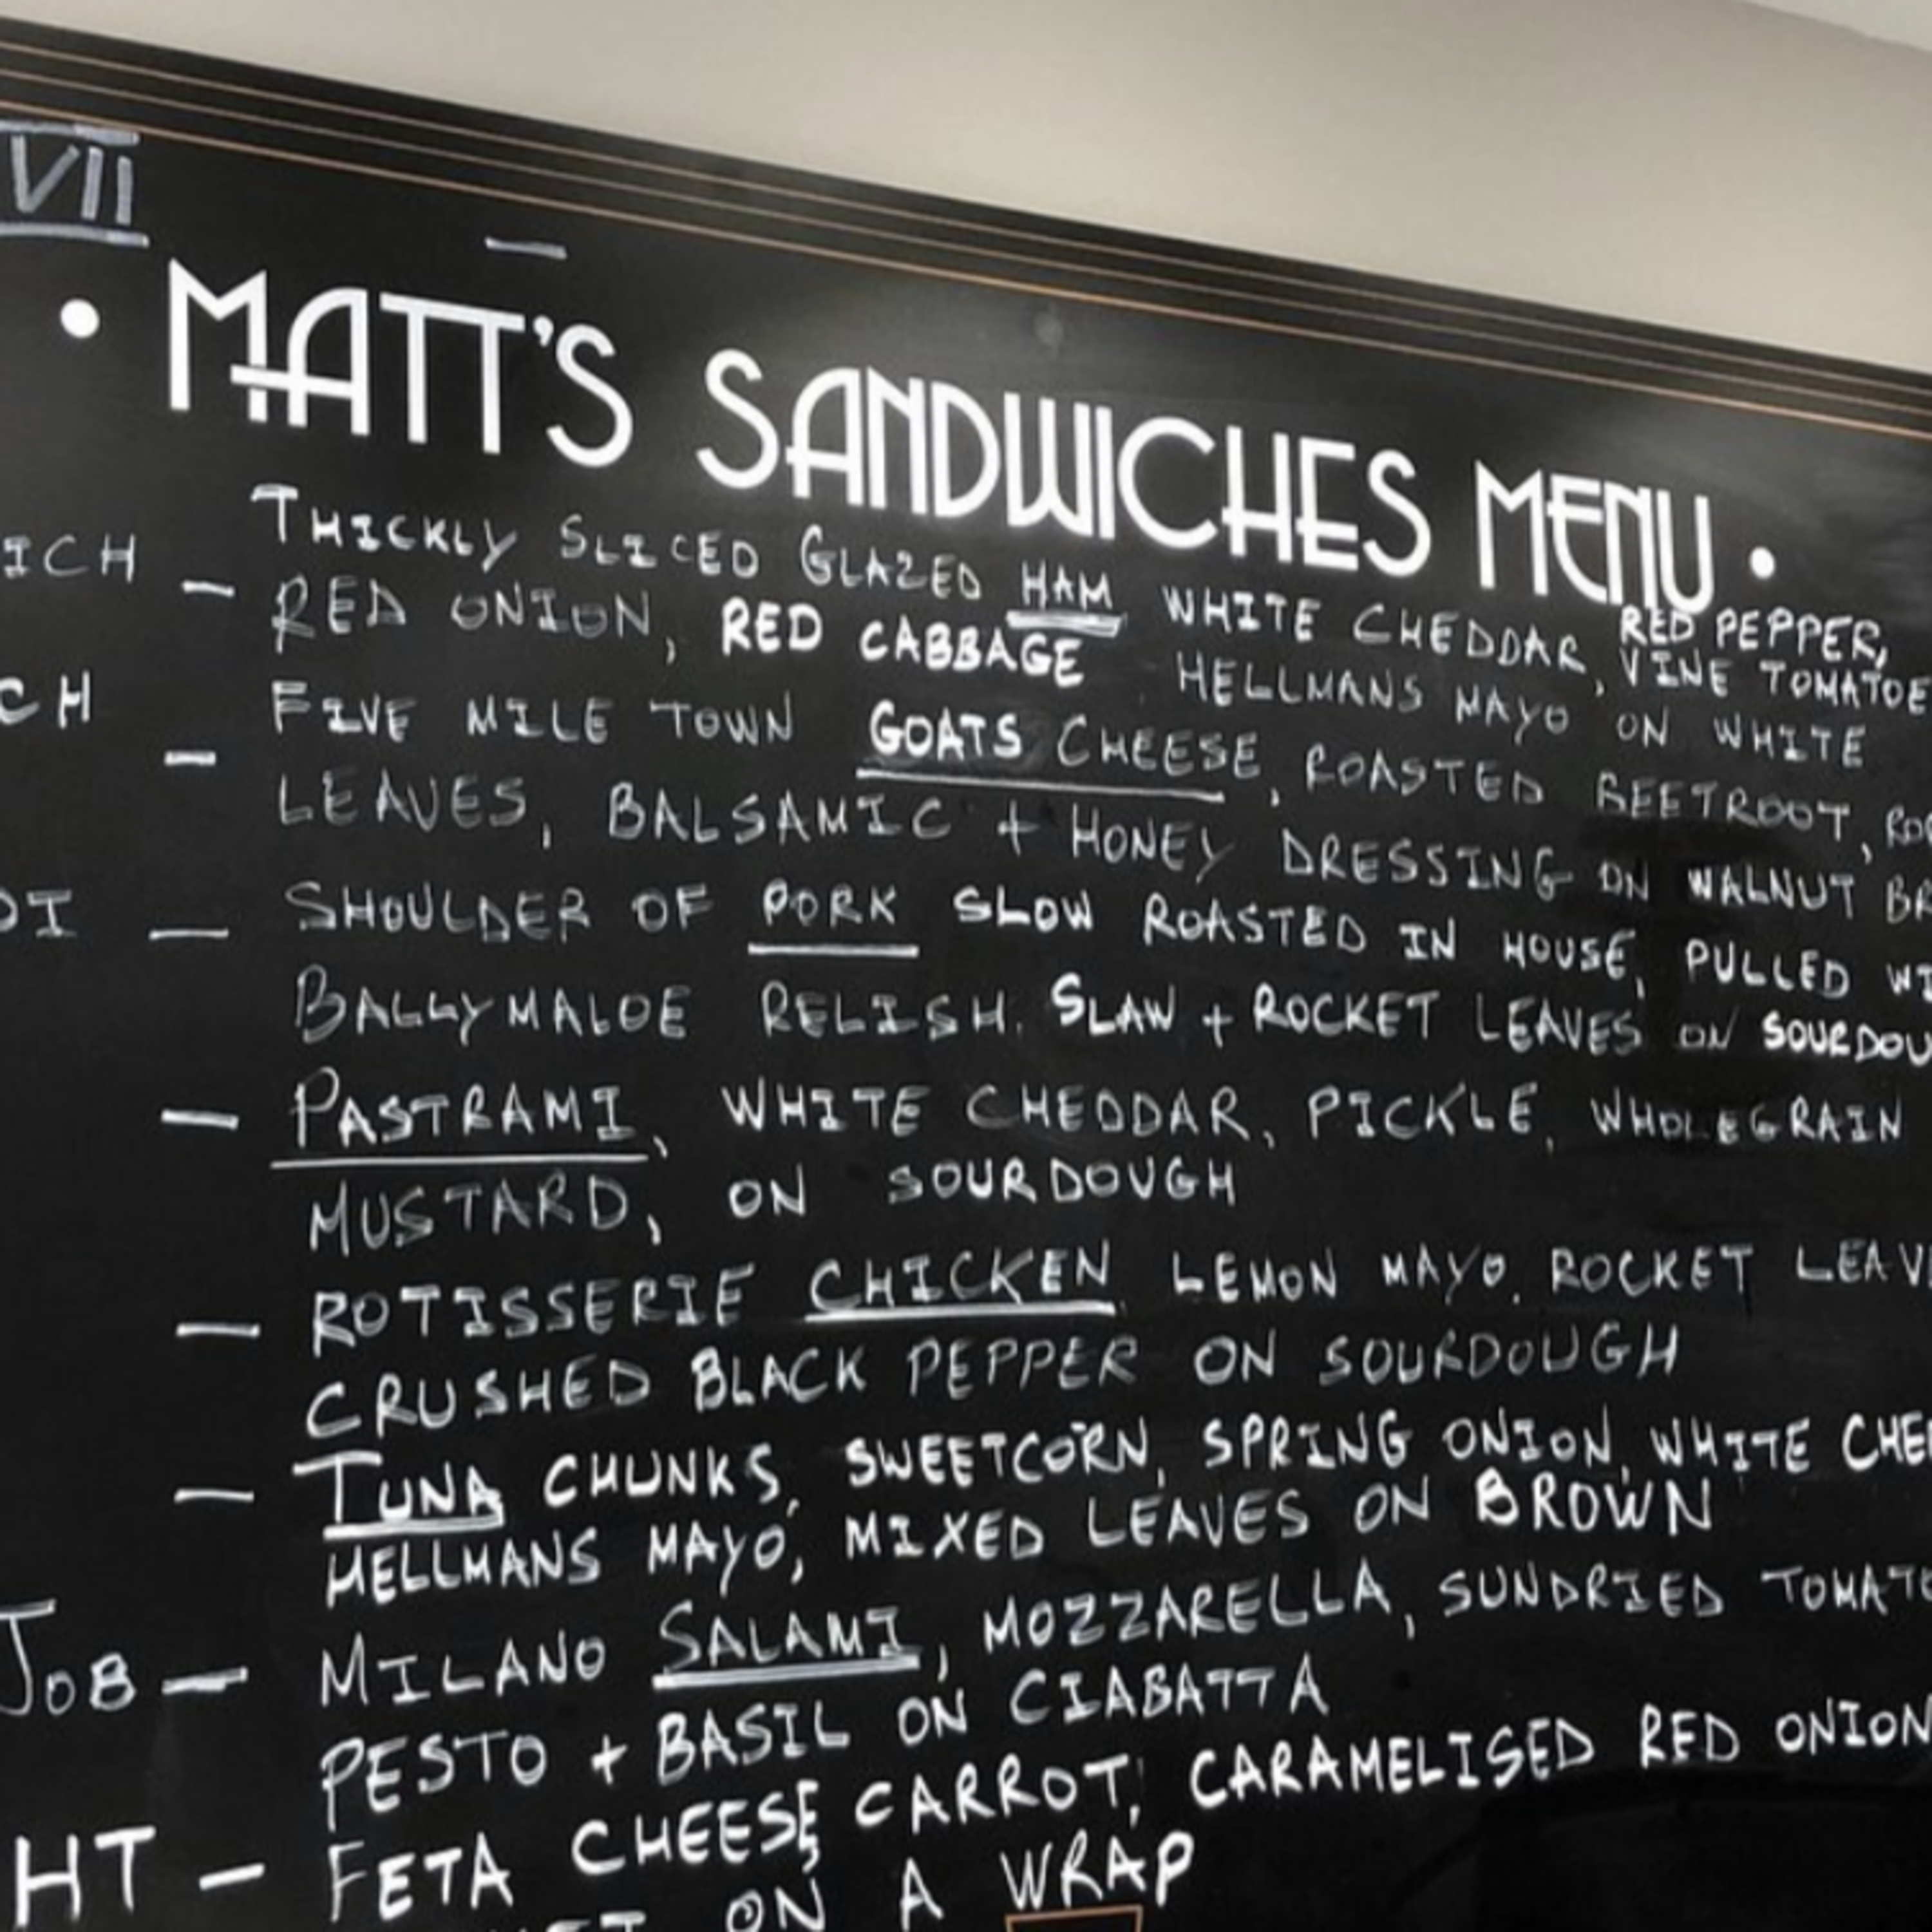 VII
• MATT'S SANDWICHES MENU •
ICH — THICKLY SLICED GLAZED HAM WHITE CHEDDAR, RED PEPPER, VINE TOMATOE
RED ONION, RED CABBAGE HELLMANS MAYO ON WHITE
CH — FIVE MILE TOWN GOATS CHEESE, ROASTED BEETROOT,
LEAVES, BALSAMIC + HONEY DRESSING ON WALNUT
DI — SHOULDER OF PORK SLOW ROASTED IN HOUSE, PULLED WI
BALLYMALOE RELISH. SLAW + ROCKET LEAVES ON SOURDOU
— PASTRAMI, WHITE CHEDDAR, PICKLE, WHOLEGRAIN
MUSTARD, ON SOURDOUGH
— ROTISSERIE CHICKEN, LEMON MAYO, ROCKET LEAVE
CRUSHED BLACK PEPPER ON SOURDOUGH
— TUNA CHUNKS, SWEETCORN, SPRING ONION, WHITE CHE
HELLMANS MAYO, MIXED LEAVES ON BROWN
JOB — MILANO SALAMI, MOZZARELLA, SUNDRIED TOMATO
PESTO + BASIL ON CIABATTA
HT — FETA CHEESE, CARROT, CARAMELISED RED ONION
ON A WRAP